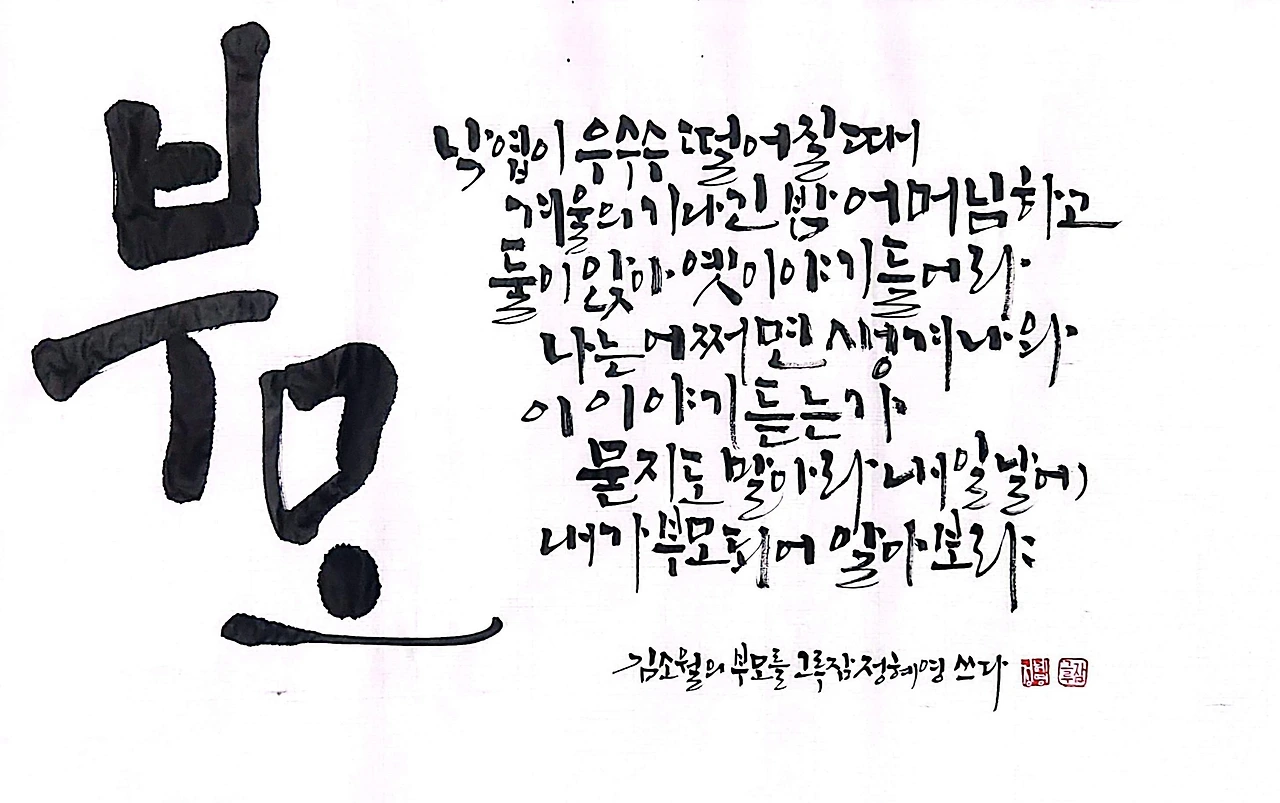 부모
낙엽이 우수수 떨어질 때
겨울의 기나긴 밤 어머님하고
둘이 앉아 옛이야기 들어라
나는 어쩌면 생겨나와
이 이야기 듣는가
묻지도 말아라 내일날에
내가 부모되어 알아보리라
김소월의 부모를 그루잠 정혜영 쓰다